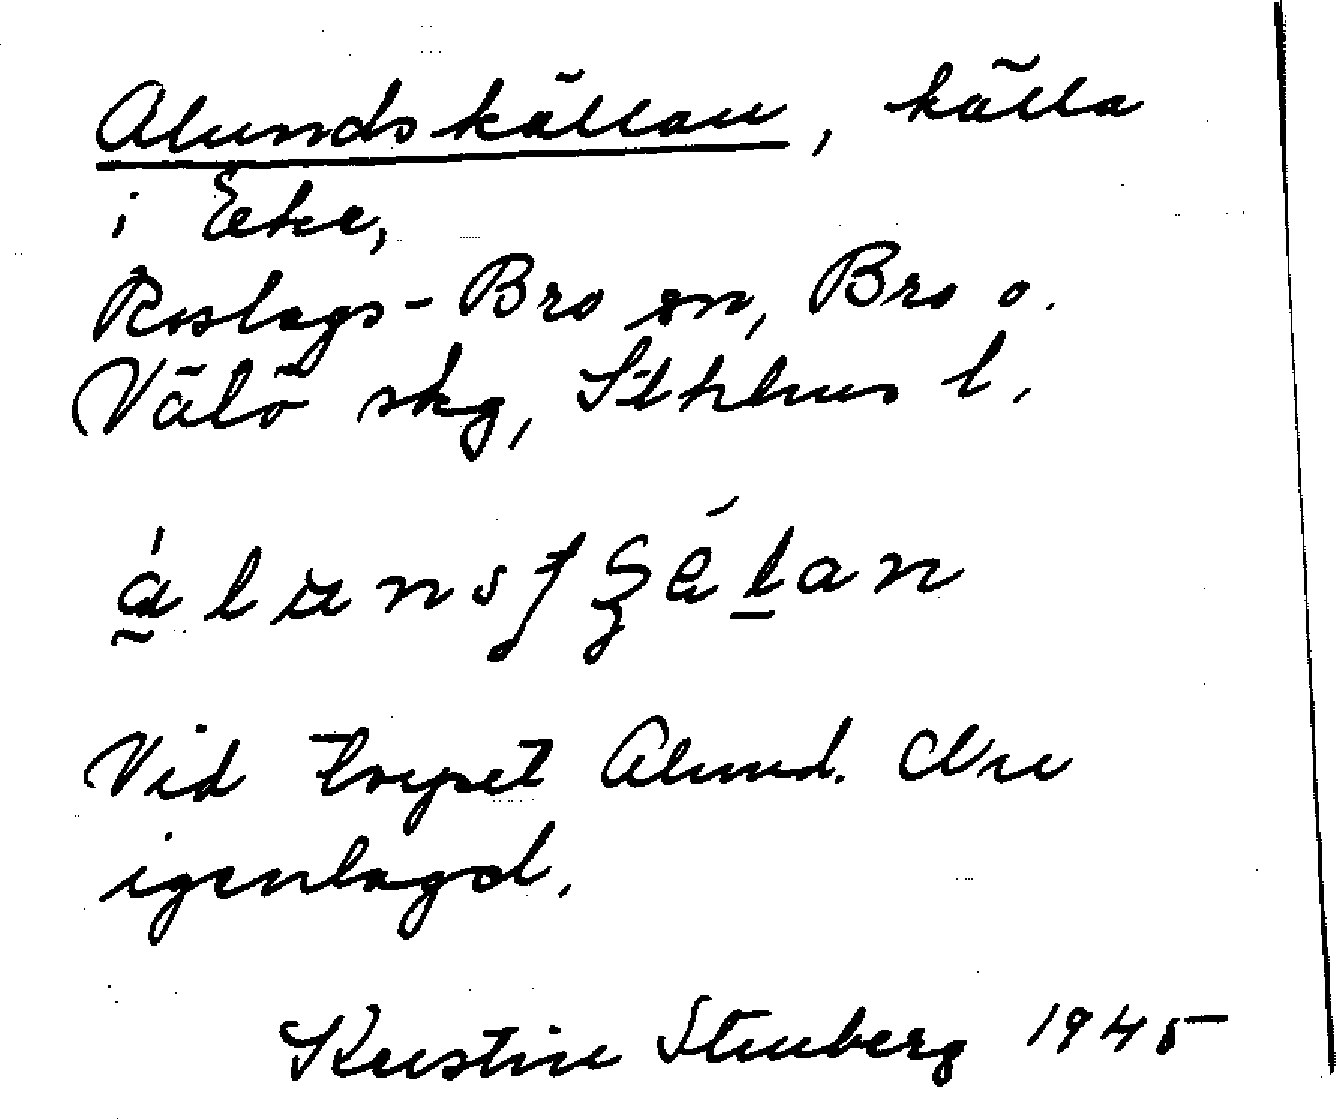 Alundskällan, källa
i Eke,
Roslags-Bro sn, Bro o.
Vätö skg, Sthlms l.
Vid torpet Alund. Nu
igenlagd.
Kerstin Stenberg 1945